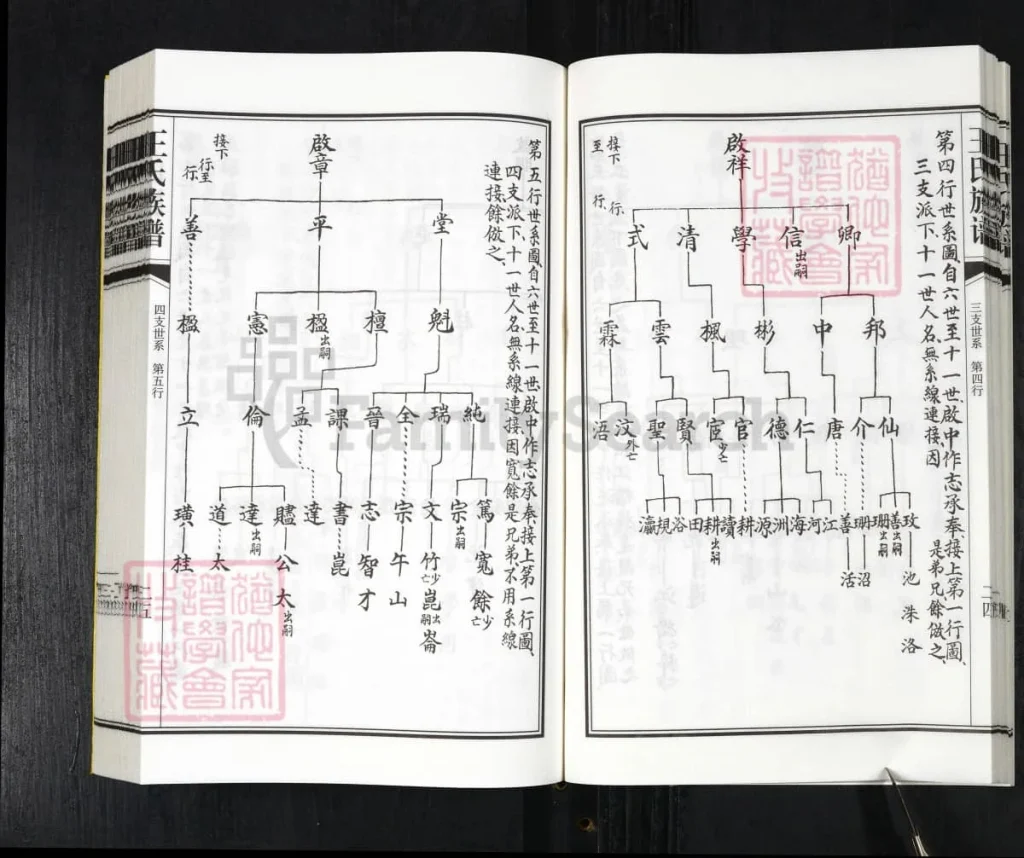 第四行世系圖、自六世至十一世、啟中作志承奉、接上第一行圖、
三支派下、十一世人名、無系線連接、因 是弟兄餘倣之、
啟祥
接下 行、
至 行、
卿 信出嗣 學 清 式
邦 中 彬 楓 雲 霖
仙 介 唐 仁 德 官 宦少亡 賢 聖 汶外亡 浯
玫 善出嗣 珊出嗣 珊 善 江 河 海 洲 源 耕 讀 耕出嗣 田 浴 規 瀛
池 沼 活
洙
洛
三支世系 第四行
二四
王氏族譜
第五行世系圖、自六世至十一世、啟中作志承奉、接上第一行圖、
四支派下、十一世人名、無系線連接、因寬餘是兄弟、不用系線
連接、餘倣之、
啟章
接下 行至
行
堂 平 善
魁 檀 楹出嗣 憲 楹
純 瑞 全 晉 課 孟 倫 立
篤 宗出嗣 文 宗 志 書 達 贃 達出嗣 道 璜
寬 竹少亡 午 智 崑 公 太 桂
餘少亡 崑出嗣 山 才 大出嗣
崙
四支世系 第五行
二五
王氏族譜
FamilySearch
譜學會
收藏